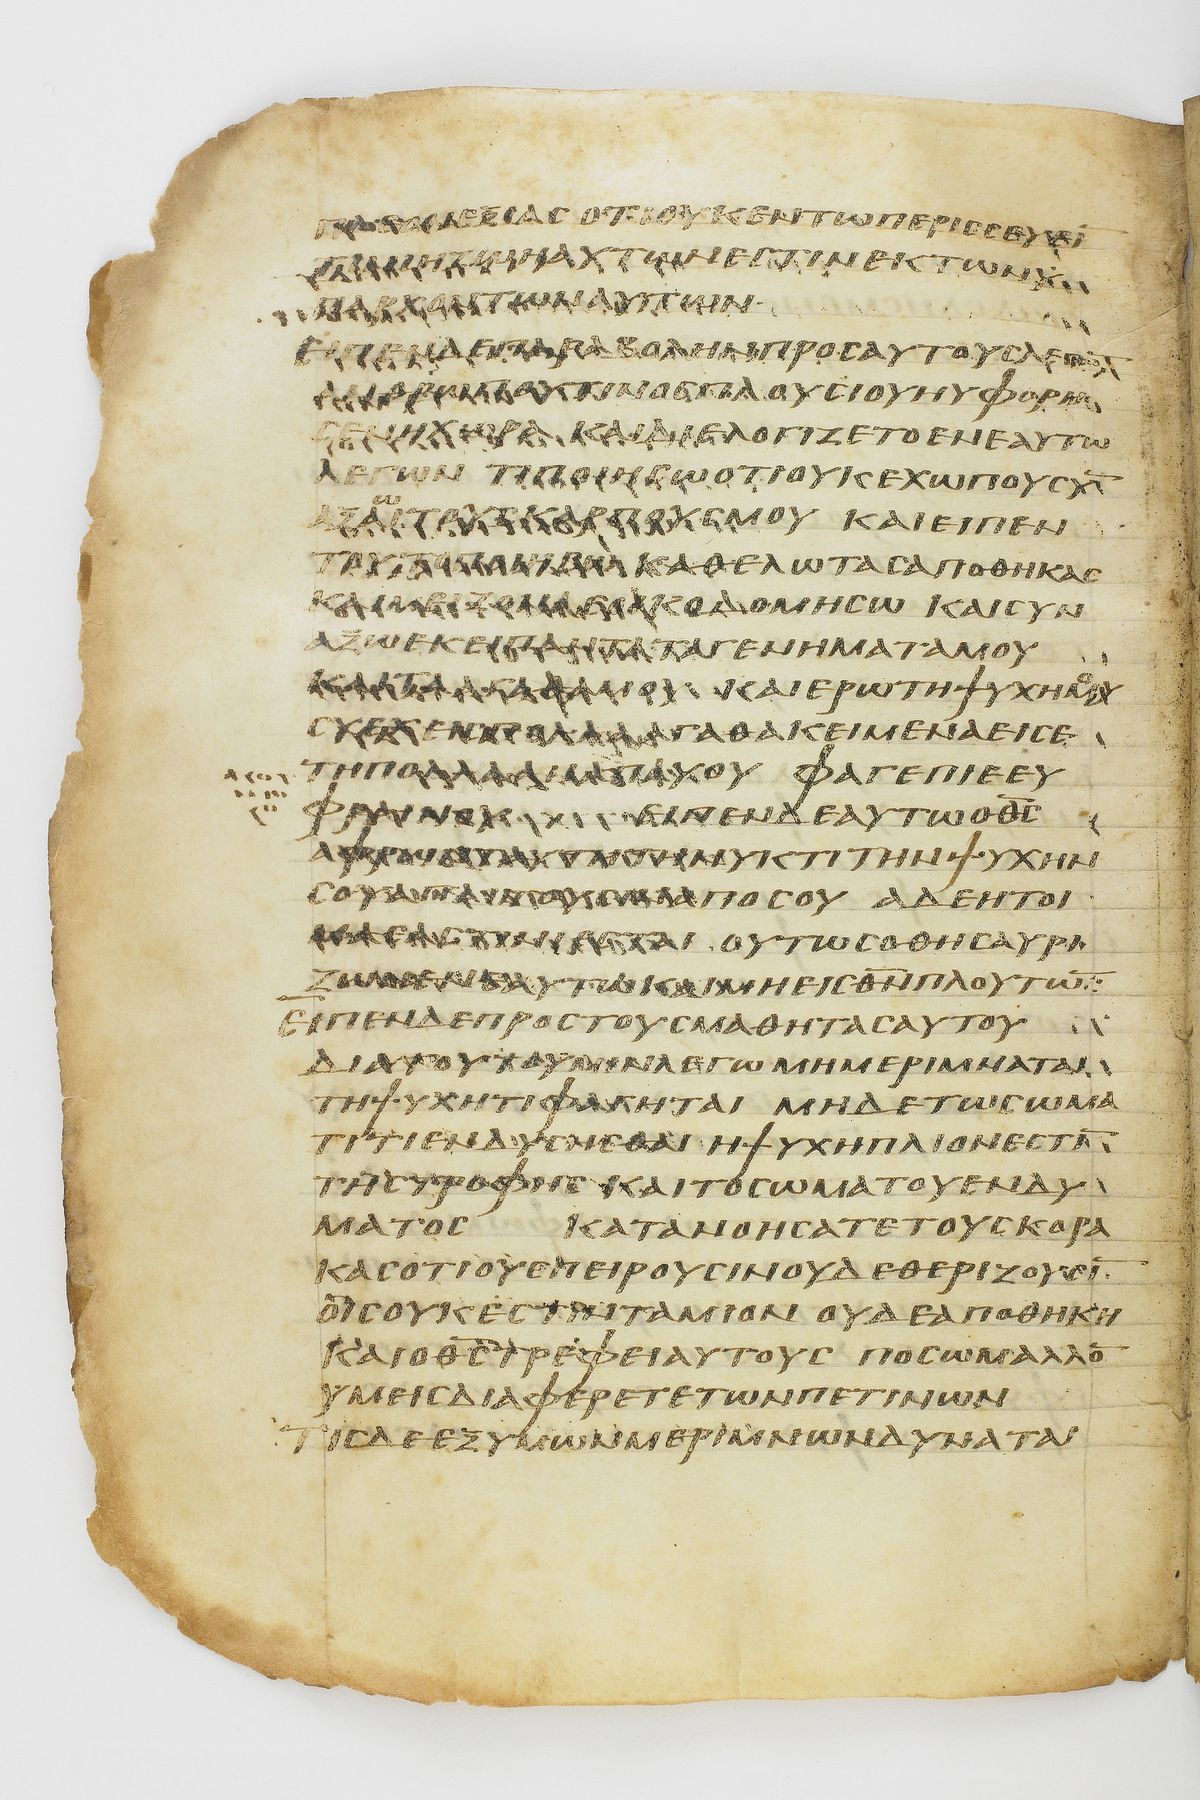 πλεονεξιας οτι ουκ εν τω περισσευειν
τινι η ζωη αυτω εστιν εκ των υ
παρχοντων αυτων
ειπεν δε παραβολην προς αυτους λεγω̅
ανθρωπου τινος πλουσιου ηυφορη
σεν η χωρα και διελογιζετο εν εαυτω
λεγων τι ποιησω οτι ουκ εχω που συν
αξω τους καρπους μου και ειπεν
τουτο ποιησω καθελω τας αποθηκας
και μειζονας οικοδομησω και συν
αξω εκει παντα τα γενηματα μου
και τα αγαθα μου και ερω τη ψυχη μου
αγαθα κειμενα εις ε
τη πολλα αναπαυου φαγε πιε ευ
φραινου ειπεν δε αυτω ο θ̅ς̅
αφρων ταυτη τη νυκτι την ψυχην
σου απαιτουσιν απο σου α δε ητοι
μασας τινι εσται ουτως ο θησαυρι
ζων εαυτω και μη εις θ̅ν̅ πλουτω̅
ειπεν δε προς τους μαθητας αυτου
δια τουτο υμιν λεγω μη μεριμναται
τη ψυχη τι φαγηται μηδε τω σωμα
τι τι ενδυσησθαι η ψυχη πλιον εστι̅
της τροφης και το σωμα του ενδυ
ματος κατανοησατε τους κορα
κας οτι ου σπειρουσιν ουδε θεριζουσι̅
οις ουκ εστιν ταμιον ουδε αποθηκη
και ο θ̅ς̅ τρεφει αυτους ποσω μαλλο̅
υμεις διαφερετε των πετινων
τις δε εξ υμων μεριμνων δυναται